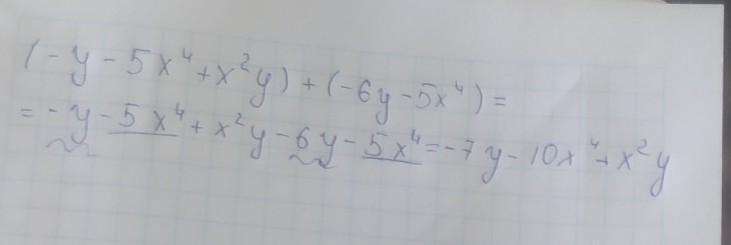 (-y-5x⁴+x²y)+(-6y-5x⁴)=
=-y-5x⁴+x²y-6y-5x⁴=-7y-10x⁴+x²y